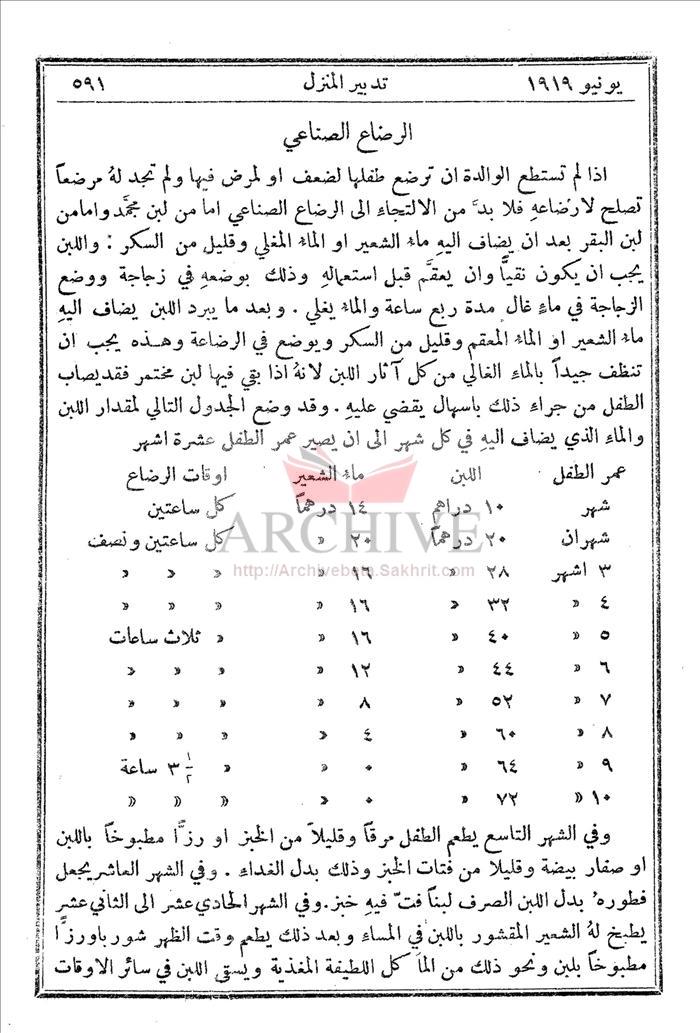 يونيو ١٩١٩ تدبير المنزل ٥٩١
الرضاع الصناعي
اذا لم تستطع الوالدة ان ترضع طفلها لضعف او لمرض فيها ولم تجد لهُ مرضعاً
تصلح لارضاعه فلا بدَّ من الالتجاء الى الرضاع الصناعي اما من لبن مجمَّد واما من
لبن البقر بعد ان يضاف اليهِ ماء الشعير او الماء المغلي وقليل من السكر : واللبن
يجب ان يكون نقياً وان يعقَّم قبل استعمالهِ وذلك بوضعهِ في زجاجة ووضع
الزجاجة في ماءٍ غال مدة ربع ساعة والماء يغلي . وبعد ما يبرد اللبن يضاف اليهِ
ماء الشعير او الماء المعقم وقليل من السكر ويوضع في الرضاعة وهذه يجب ان
تنظف جيداً بالماء الغالي من كل آثار اللبن لانهُ اذا بقي فيها لبن مختمر فقد يصاب
الطفل من جراء ذلك باسهال يقضي عليهِ . وقد وضع الجدول التالي لمقدار اللبن
والماء الذي يضاف اليهِ في كل شهر الى ان يصير عمر الطفل عشرة اشهر
عمر الطفل اللبن ماء الشعير اوقات الرضاع
شهر ١٠ دراهم ١٤ درهماً كل ساعتين
شهران ٢٠ درهماً ٢٠ » كل ساعتين ونصف
٣ اشهر ٢٨ » ١٦ » » » »
٤ » ٣٢ » ١٦ » » » »
٥ » ٤٠ » ١٦ » » ثلاث ساعات
٦ » ٤٤ » ١٢ » » » »
٧ » ٥٢ » ٨ » » » »
٨ » ٦٠ » ٤ » » » »
٩ » ٦٤ » ٠ » » ٣ ١/٢ ساعة
١٠ » ٧٢ » ٠ » » » »
وفي الشهر التاسع يطعم الطفل مرقاً وقليلاً من الخبز او رزًّا مطبوخاً باللبن
او صفار بيضة وقليلا من فتات الخبز وذلك بدل الغداء . وفي الشهر العاشر يجعل
فطوره ُ بدل اللبن الصرف لبناً فتّ فيهِ خبز. وفي الشهر الحادي عشر الى الثاني عشر
يطبخ لهُ الشعير المقشور باللبن في المساء وبعد ذلك يطعم وقت الظهر شوربا ورزًّا
مطبوخاً بلبن ونحو ذلك من المآكل اللطيفة المغذية ويسقى اللبن في سائر الاوقات
ARCHIVE
http://Archivebeta.Sakhrit.com